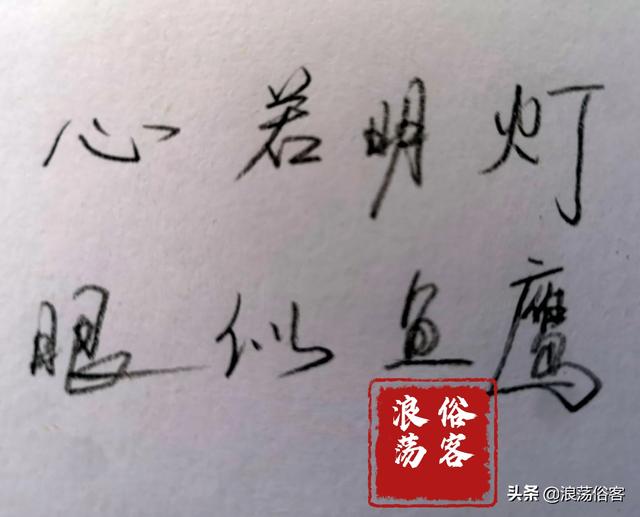 心若明灯
眼似鱼鹰
俗客
浪荡
头条 @浪荡俗客